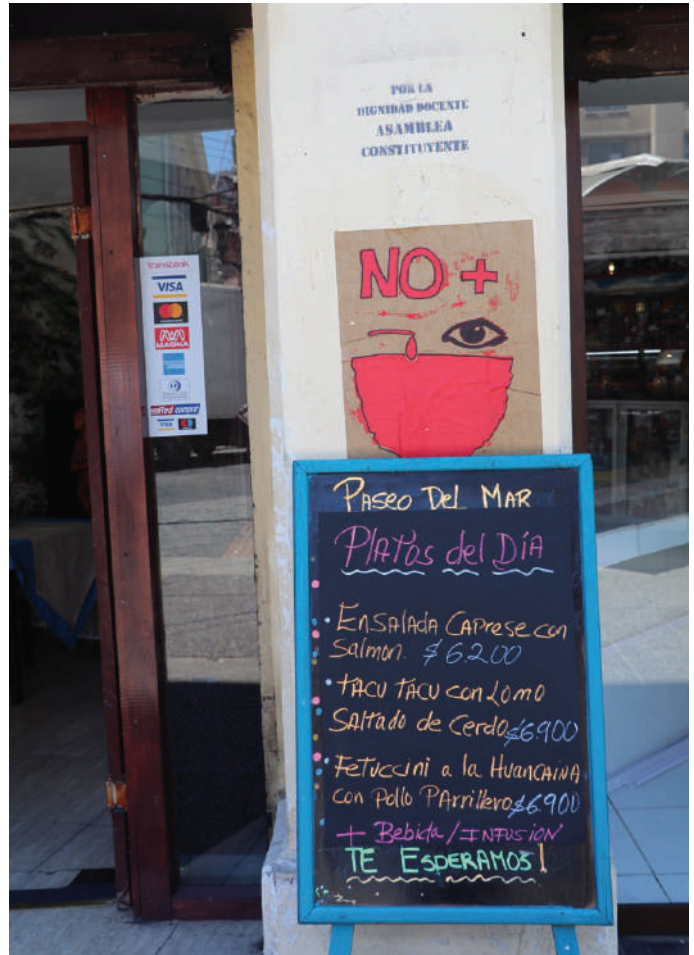 POR LA
DIGNIDAD DOCENTE
ASAMBLEA
CONSTITUYENTE
NO +
transbank
VISA
MAGNA
VISA
PASEO DEL MAR
PLATOS del DÍA
• ENSALADA CAPRESE con
Salmon. $6.200
• TACU TACU con LOMO
SALTADO de Cerdo $6.900
• FETUCCINI a la HUANCAINA
con Pollo PARRILLERO $6.900
+ Bebida/INFUSION
TE ESPERAMOS!